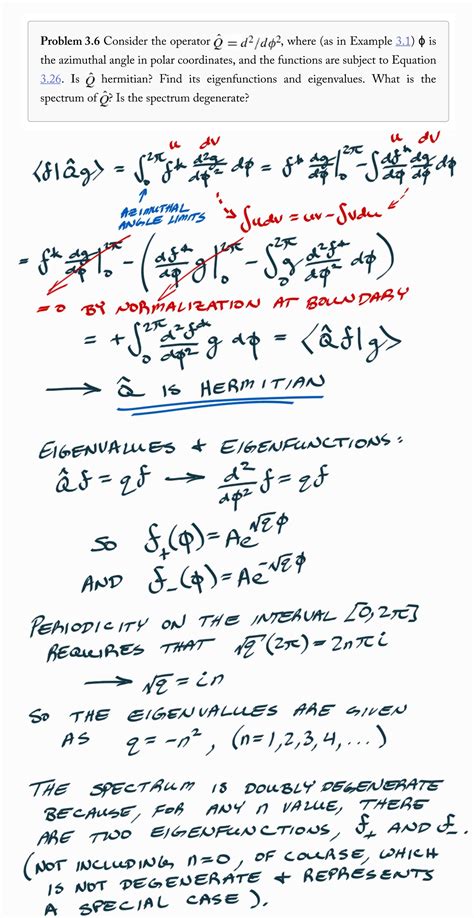 Problem 3.6 Consider the operator Q̂ = d²/dφ², where (as in Example 3.1) ϕ is
the azimuthal angle in polar coordinates, and the functions are subject to Equation
3.26. Is Q̂ hermitian? Find its eigenfunctions and eigenvalues. What is the
spectrum of Q̂? Is the spectrum degenerate?
u dv u dv
⟨f|Q̂g⟩ = ∫₀^2π f* d²g/dφ² dφ = f* dg/dφ |₀^2π - ∫ df*/dφ dg/dφ dφ
AZIMUTHAL
ANGLE LIMITS
∫udv = uv - ∫vdu
= f* dg/dφ |₀^2π - (df*/dφ g|₀^2π - ∫₀^2π g d²f*/dφ² dφ)
= 0 BY NORMALIZATION AT BOUNDARY
= + ∫₀^2π d²f*/dφ² g dφ = ⟨Q̂f|g⟩
→ Q̂ IS HERMITIAN
EIGENVALUES & EIGENFUNCTIONS:
Q̂f = qf → d²/dφ² f = qf
SO f₊(φ) = Ae^√q φ
AND f₋(φ) = Ae^-√q φ
PERIODICITY ON THE INTERVAL [0,2π]
REQUIRES THAT √q (2π) = 2nπi
→ √q = in
SO THE EIGENVALUES ARE GIVEN
AS q = -n², (n=1,2,3,4,...)
THE SPECTRUM IS DOUBLY DEGENERATE
BECAUSE, FOR ANY n VALUE, THERE
ARE TWO EIGENFUNCTIONS, f₊ AND f₋.
(NOT INCLUDING n=0, OF COURSE, WHICH
IS NOT DEGENERATE & REPRESENTS
A SPECIAL CASE).